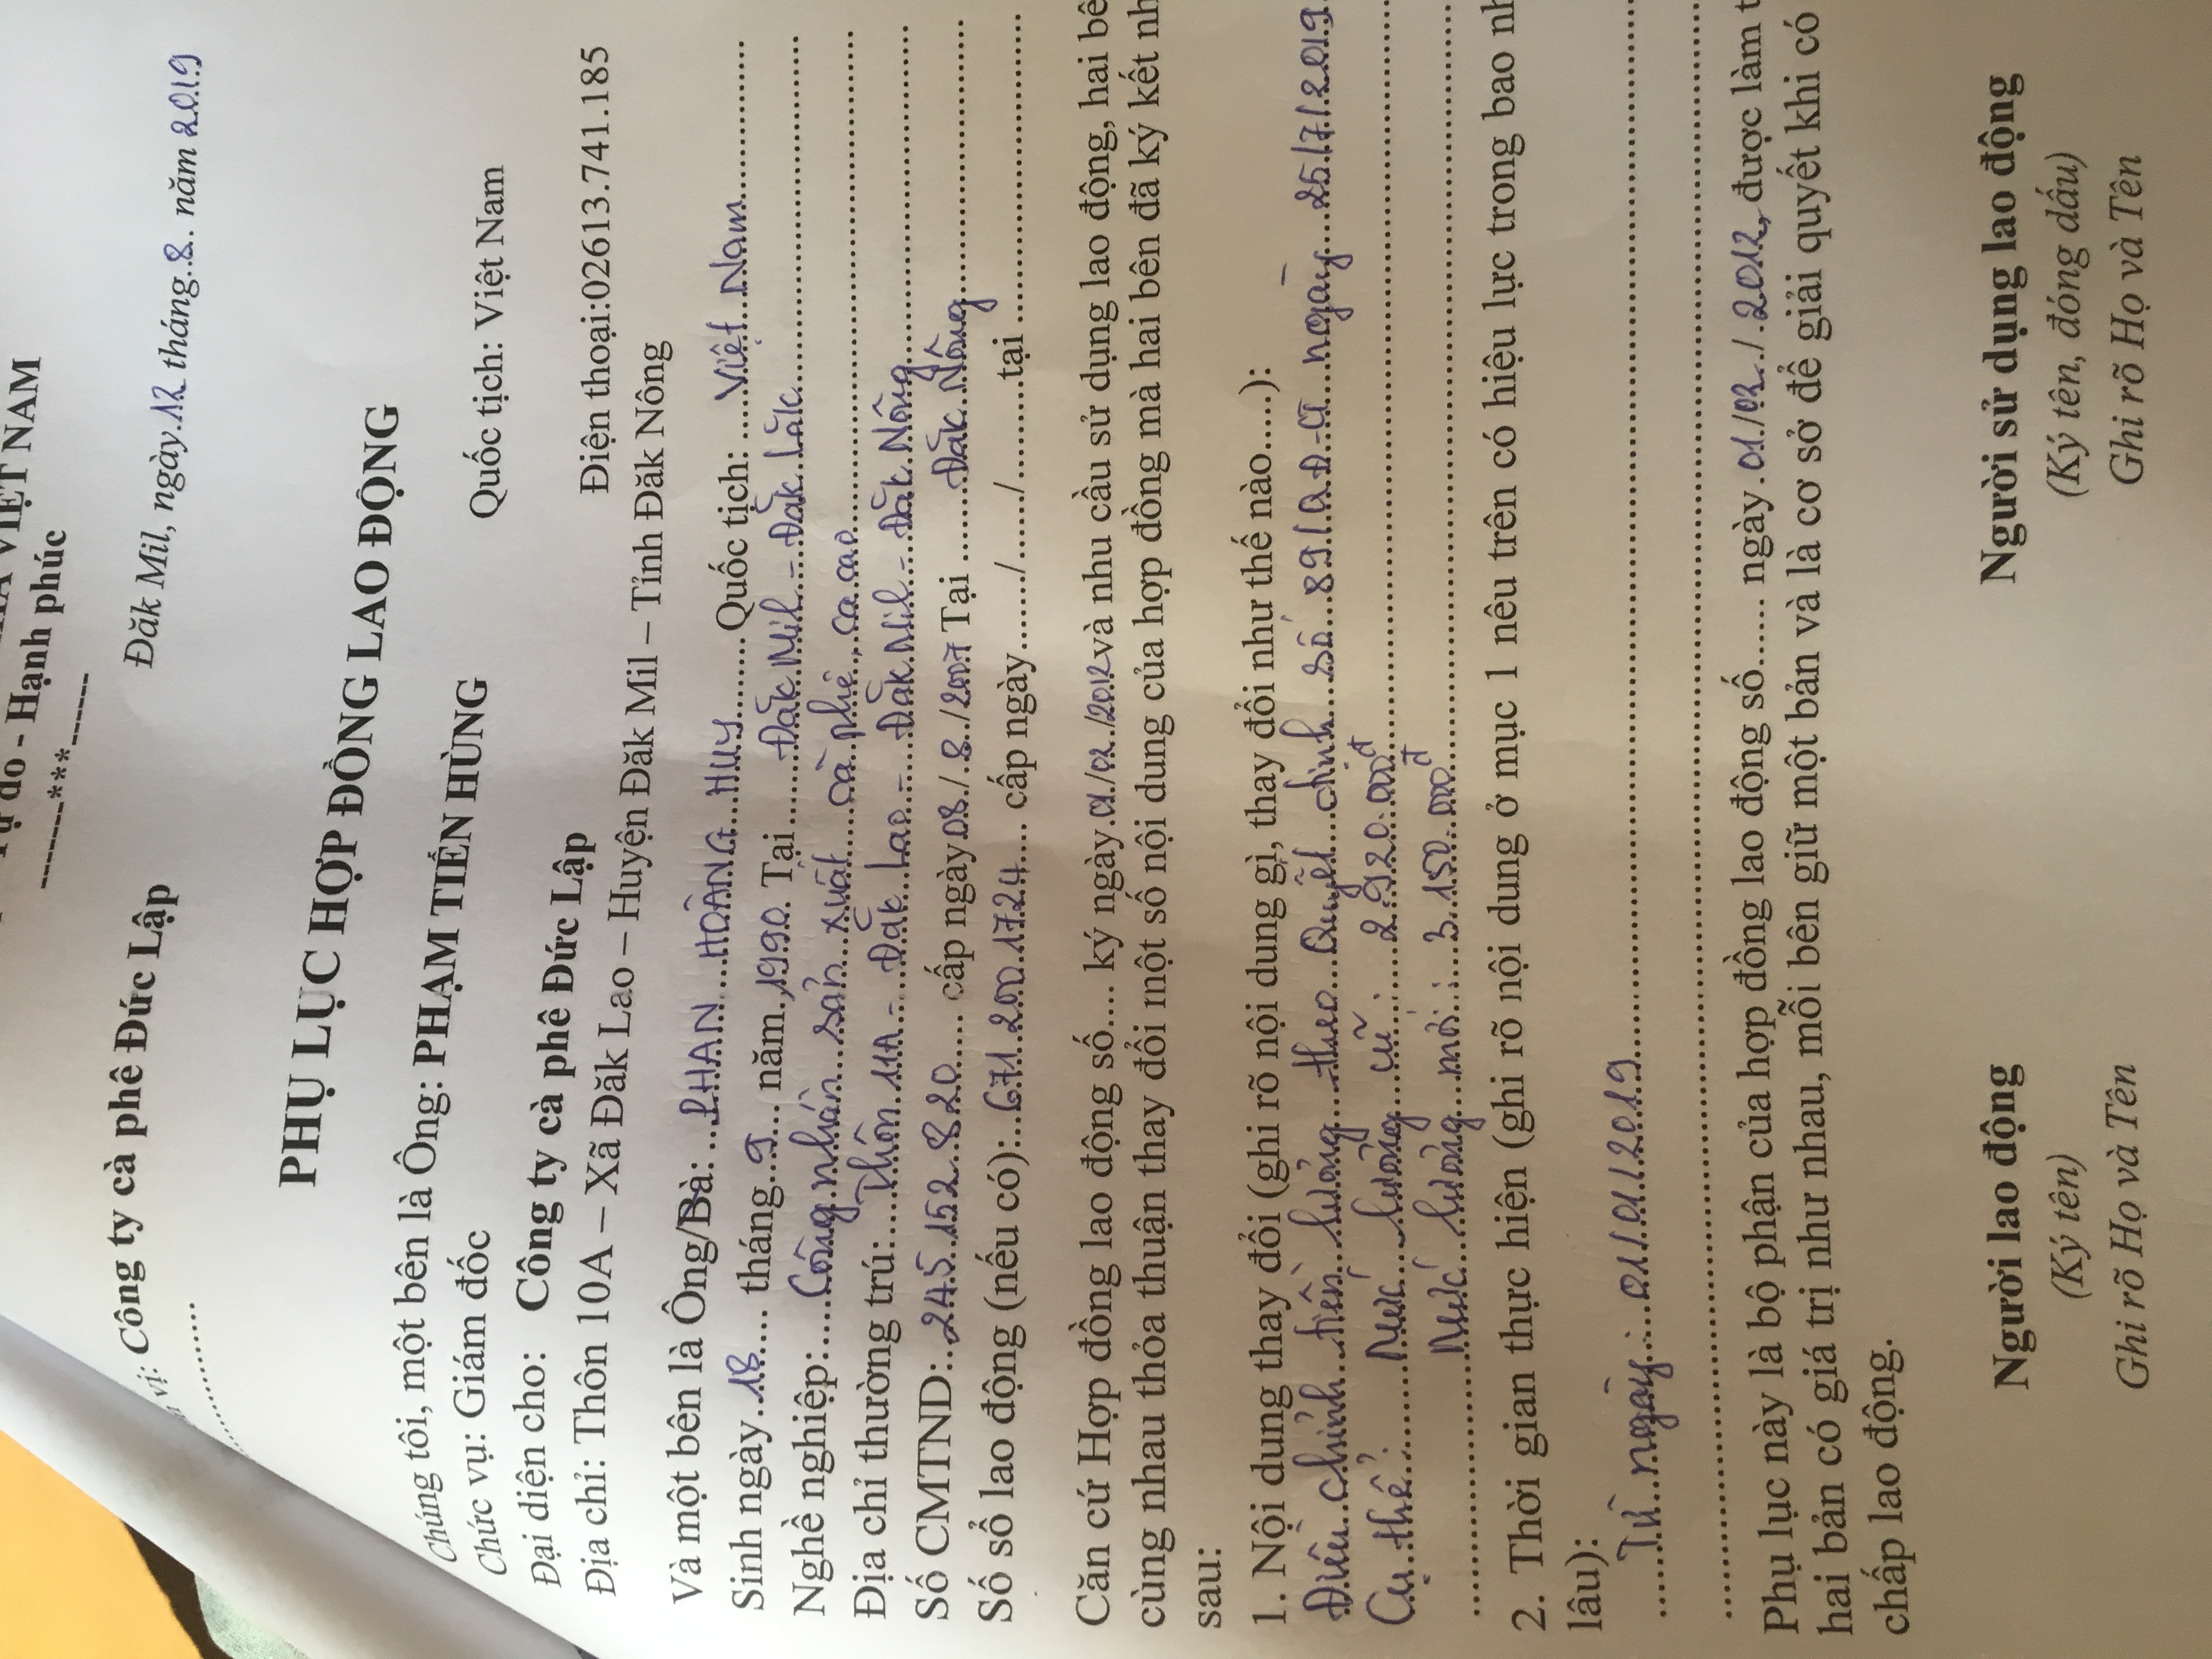 VIỆT NAM
Tự do - Hạnh phúc
-------***------
vị: Công ty cà phê Đức Lập
Đăk Mil, ngày 12 tháng 8 năm 2019
PHỤ LỤC HỢP ĐỒNG LAO ĐỘNG
Chúng tôi, một bên là Ông: PHẠM TIẾN HÙNG Quốc tịch: Việt Nam
Chức vụ: Giám đốc
Đại diện cho: Công ty cà phê Đức Lập Điện thoại:02613.741.185
Địa chỉ: Thôn 10A – Xã Đăk Lao – Huyện Đăk Mil – Tỉnh Đăk Nông
Và một bên là Ông/Bà: PHAN HOÀNG HUY Quốc tịch: Việt Nam
Sinh ngày 18 tháng 9 năm 1990 Tại Đăk Mil - Đăk Lăk
Nghề nghiệp: Công nhân sản xuất cà phê, ca cao
Địa chỉ thường trú: Thôn 11A - Đăk Lao - Đăk Mil - Đăk Nông
Số CMTND: 245 152 820 cấp ngày 08/8/2007 Tại Đăk Nông
Số sổ lao động (nếu có): 671 200 1724 cấp ngày......./....../.........tại ..............................
Căn cứ Hợp đồng lao động số.... ký ngày 01/02/2012 và nhu cầu sử dụng lao động, hai bê
cùng nhau thỏa thuận thay đổi một số nội dung của hợp đồng mà hai bên đã ký kết nh
sau:
1. Nội dung thay đổi (ghi rõ nội dung gì, thay đổi như thế nào.....):
Điều chỉnh tiền lương theo Quyết định số 89/QĐ-CT ngày 25/7/2019
Cụ thể: Mức lương cũ: 2.920.000đ
Mức lương mới: 3.150.000đ
2. Thời gian thực hiện (ghi rõ nội dung ở mục 1 nêu trên có hiệu lực trong bao nh
lâu):
Từ ngày: 01/01/2019
Phụ lục này là bộ phận của hợp đồng lao động số...... ngày 01/02/2012, được làm t
hai bản có giá trị như nhau, mỗi bên giữ một bản và là cơ sở để giải quyết khi có
chấp lao động.
Người lao động Người sử dụng lao động
(Ký tên) (Ký tên, đóng dấu)
Ghi rõ Họ và Tên Ghi rõ Họ và Tên